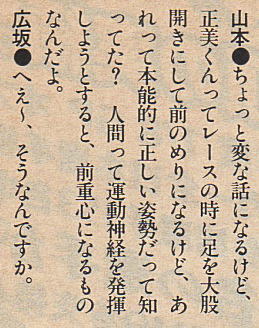 山本●ちょっと変な話になるけど、
正美くんってレースの時に足を大股
開きにして前のめりになるけど、あ
れって本能的に正しい姿勢だって知
ってた？　人間って運動神経を発揮
しようとすると、前重心になるもの
なんだよ。
広坂●へぇ〜、そうなんですか。